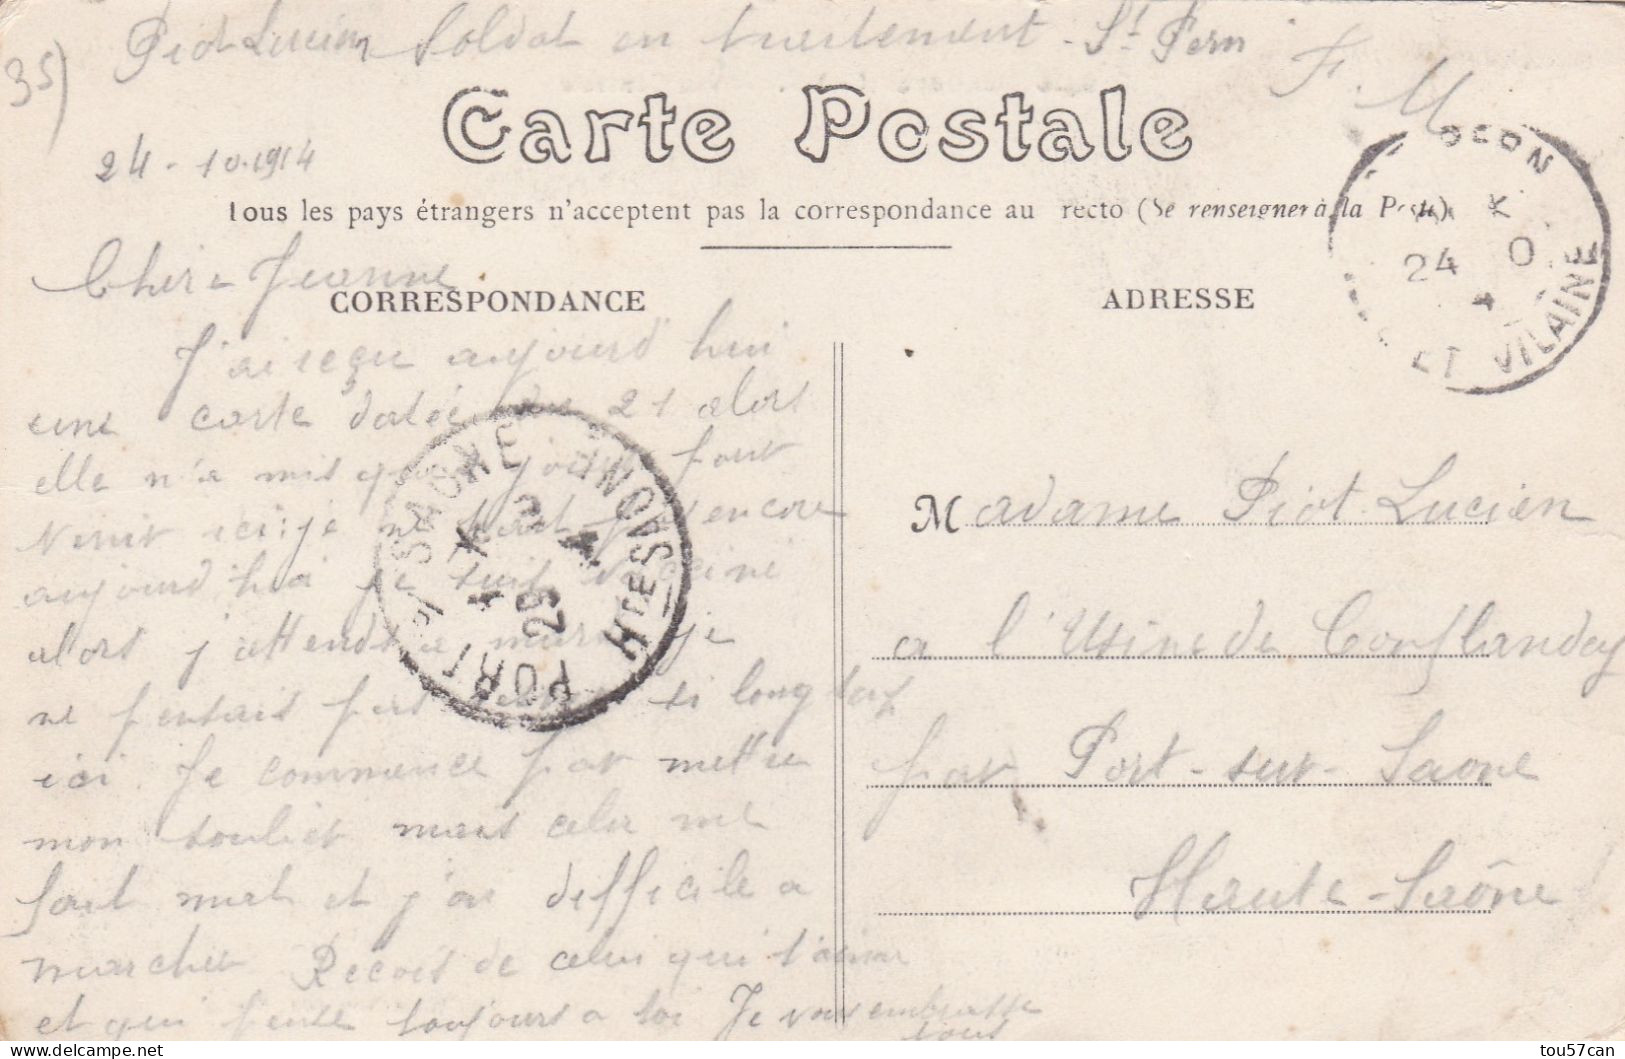 35)
Piot Lucien Soldat en traitement - St Pern
F. M
Carte Postale
24 - 10.1914
Tous les pays étrangers n'acceptent pas la correspondance au recto (Se renseigner à la Poste)
24
ET VILAINE
Chère Jeanne
CORRESPONDANCE
ADRESSE
J'ai reçu aujourd'hui
une carte datée du 21 alors
elle n'a mis que jours pour
venir ici: je ne pas encore
aujourd'hui je suis
alors j'attends mais je
ne pensais pas si longtemp
ici Je commence par mettre
mon soulier mais cela me
fait mal et j'ai difficile a
marcher Recois de celui qui t'aime
et qui pense toujours a toi Je vous embrasse
tous
PORT S/ SAONE
Hte SAONE
29
Madame Piot Lucien
a l'Usine de Conflandey
par Port-sur-Saone
Haute-Saône
tou57can